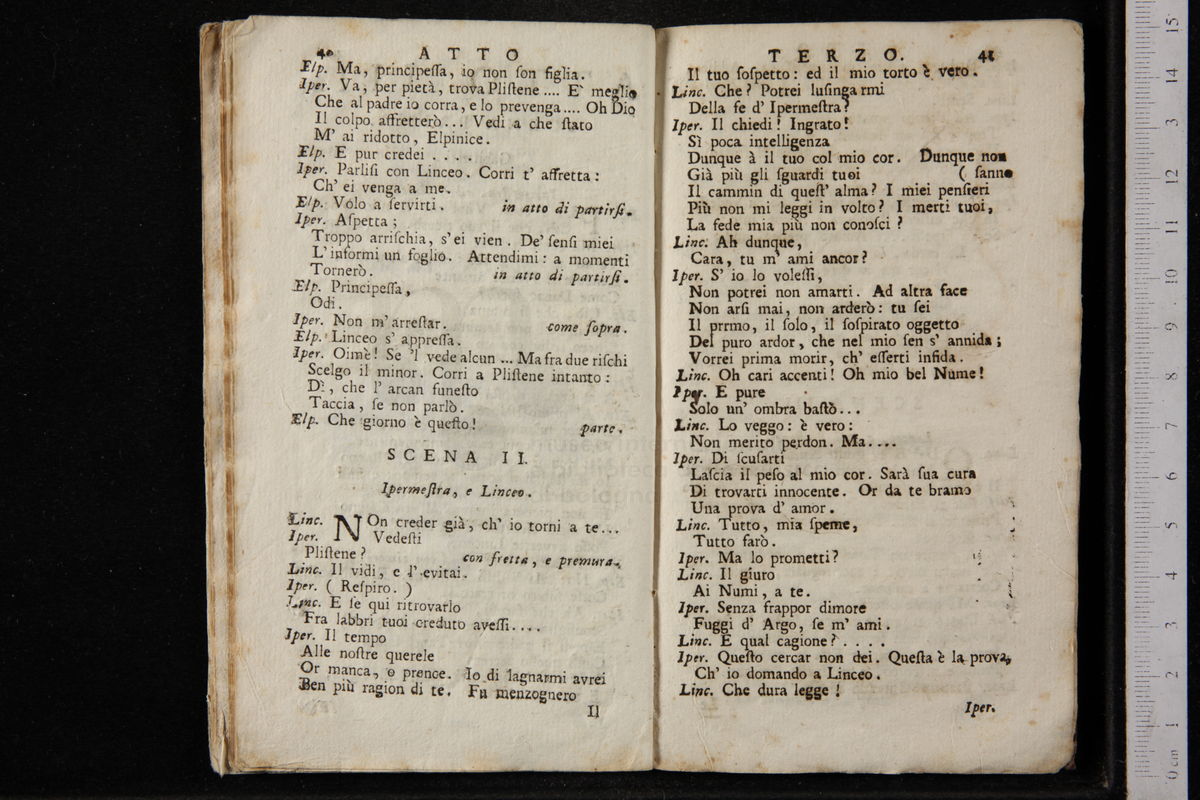 40 ATTO
Elp. Ma, principeſſa, io non ſon figlia.
Iper. Va, per pietà, trova Pliſtene .... E' meglio
Che al padre io corra, e lo prevenga .... Oh Dio
Il colpo affretterò ... Vedi a che ſtato
M' ai ridotto, Elpinice.
Elp. E pur credei ....
Iper. Parliſi con Linceo. Corri t' affretta:
Ch' ei venga a me.
Elp. Volo a ſervirti. in atto di partirſi.
Iper. Aſpetta;
Troppo arriſchia, s' ei vien. De' ſenſi miei
L' informi un foglio. Attendimi: a momenti
Tornerò. in atto di partirſi.
Elp. Principeſſa,
Odi.
Iper. Non m' arreſtar. come ſopra.
Elp. Linceo s' appreſſa.
Iper. Oimè! Se 'l vede alcun ... Ma fra due riſchi
Scelgo il minor. Corri a Pliſtene intanto:
Dì, che l' arcan funeſto
Taccia, ſe non parlò.
Elp. Che giorno è queſto! parte.
SCENA II.
Ipermeſtra, e Linceo.
Linc. NOn creder già, ch' io torni a te...
Iper. Vedeſti
Pliſtene? con fretta, e premura.
Linc. Il vidi, e l' evitai.
Iper. ( Reſpiro. )
Linc. E ſe qui ritrovarlo
Fra labbri tuoi creduto aveſſi....
Iper. Il tempo
Alle noſtre querele
Or manca, o prence. Io di lagnarmi avrei
Ben più ragion di te. Fu menzognero
Il
TERZO. 41
Il tuo ſoſpetto: ed il mio torto è vero.
Linc. Che? Potrei luſingarmi
Della fe d' Ipermeſtra?
Iper. Il chiedi! Ingrato!
Sì poca intelligenza
Dunque à il tuo col mio cor. Dunque non
Già più gli ſguardi tuoi ( ſanno
Il cammin di queſt' alma? I miei penſieri
Più non mi leggi in volto? I merti tuoi,
La fede mia più non conoſci?
Linc. Ah dunque,
Cara, tu m' ami ancor?
Iper. S' io lo voleſſi,
Non potrei non amarti. Ad altra face
Non arſi mai, non arderò: tu ſei
Il prrmo, il ſolo, il ſoſpirato oggetto
Del puro ardor, che nel mio ſen s' annida;
Vorrei prima morir, ch' eſſerti infida.
Linc. Oh cari accenti! Oh mio bel Nume!
Iper. E pure
Solo un' ombra baſtò...
Linc. Lo veggo: è vero:
Non merito perdon. Ma....
Iper. Di ſcuſarti
Laſcia il peſo al mio cor. Sarà ſua cura
Di trovarti innocente. Or da te bramo
Una prova d' amor.
Linc. Tutto, mia ſpeme,
Tutto farò.
Iper. Ma lo prometti?
Linc. Il giuro
Ai Numi, a te.
Iper. Senza frappor dimore
Fuggi d' Argo, ſe m' ami.
Linc. E qual cagione? ....
Iper. Queſto cercar non dei. Queſta è la prova,
Ch' io domando a Linceo.
Linc. Che dura legge!
Iper.
15
14
13
12
11
10
9
8
7
6
5
4
3
2
1
0 cm